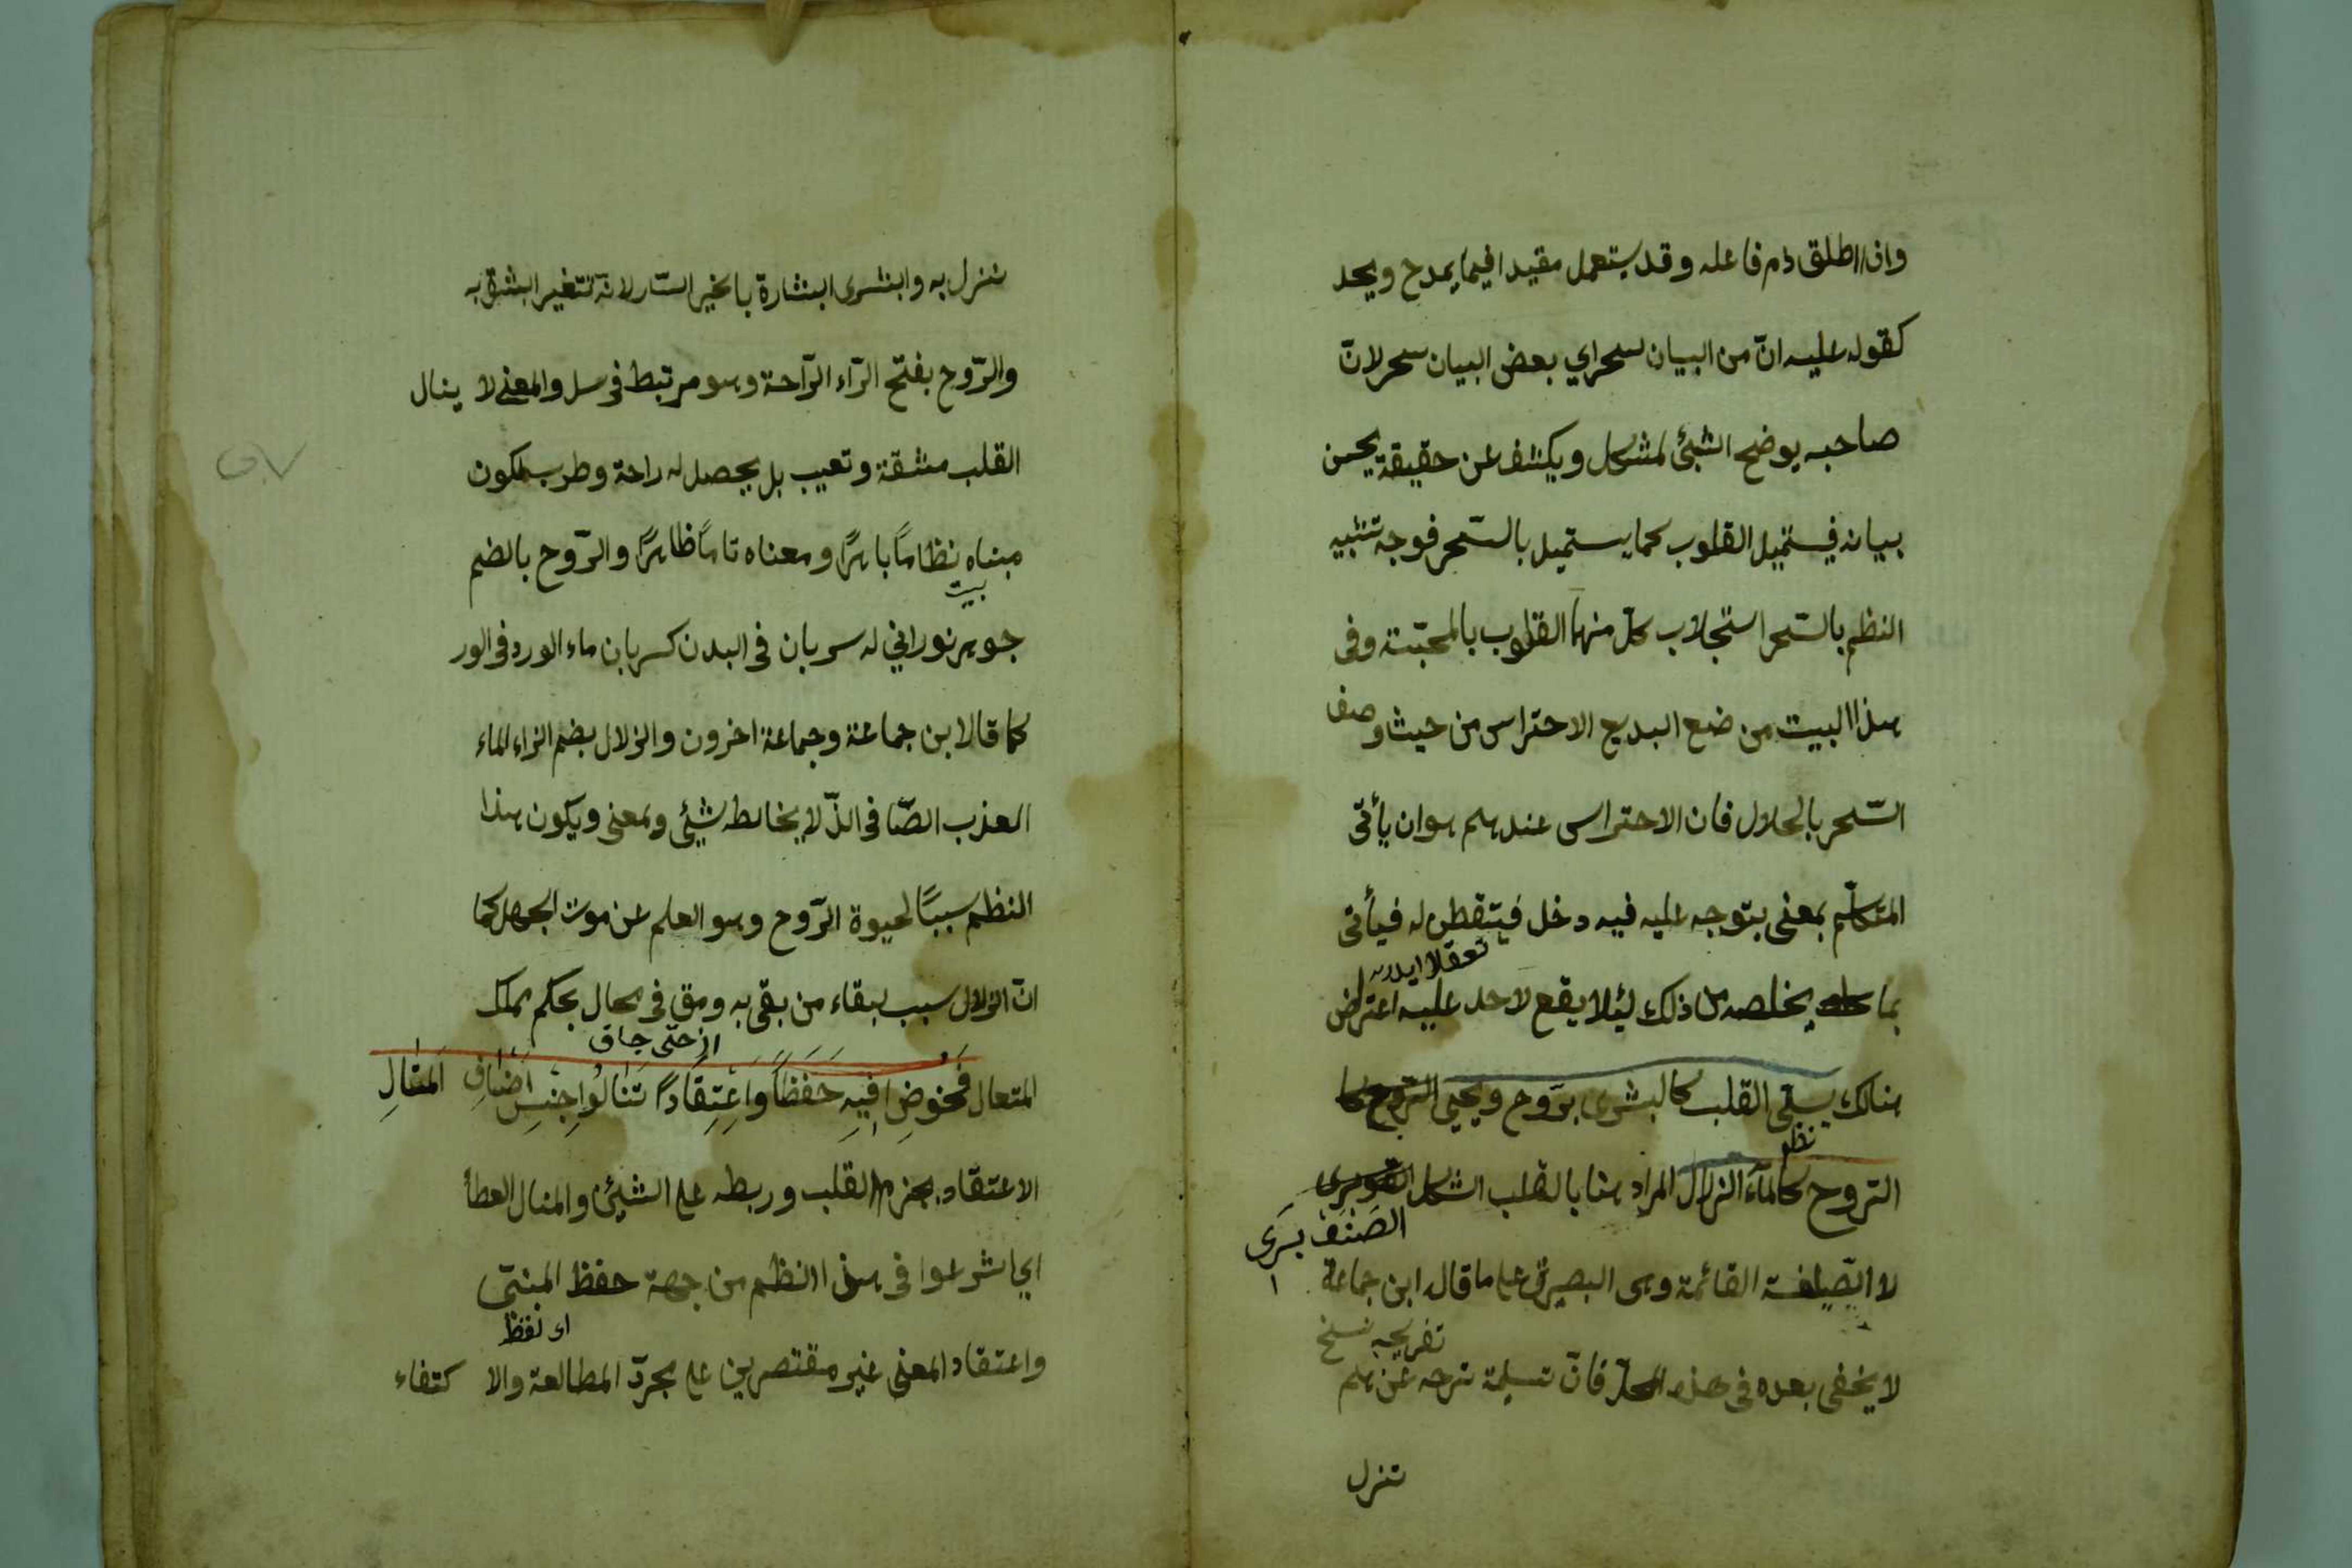 واذا اطلق ذم فاعله وقد يستعمل مقيدا فيما يمدح ويحد
كقوله عليه انّ من البيان لسحرا اي بعض البيان سحر لانّ
صاحبه يوضح الشيئ لمشكل ويكشف عن حقيقة يحسن
بيانه فيستميل القلوب كما يستميل بالسّحر فوجه تشبيه
النظم بالسّحر استجلاب كلّ منهما القلوب بالمحبّة وفى
هذا البيت من ضع البديع الاحتراس من حيث وصف
السّحر بالحلال فان الاحتراس عندهم هو ان يأتى
المتكلّم بمعنى يتوجه عليه فيه دخل فيتفطن له فيأتى
بما يخلصه من ذلك ليئلا يقع لاحد عليه اعتراض
هنالك يسقى القلب كالبشرى بروح ويحيى الروح
الروح كالمآء الزلال المراد هنا بالقلب الشكل
الصنف بسرى
لا اللطيفة القائمة وهى البصيرة على ما قال ابن جماعة
تفريحه نسخ
لا يخفى بعده فى هذه المحلّ فانّ تسلية ترحه عن هلم
تنزل
تنزل به وابشرى ابشارة بالخير السّار لانه تتغير البشرة به
والرّوح بفتح الرّاء الرّاحة وهو مرتبط فى سل والمعنى لا ينال
القلب مشقة وتعيب بل يحصل له راحة وطرب لكون
مبناه نظامًا باهرًا ومعناه تامًا ظاهرًا والرّوح بالضم
بيت
جوهر نوراني له سريان فى البدن كسريان ماء الورد فى الور
كما قال ابن جماعة وجماعة اخرون والزلال بضم الزاء الماء
العذب الصّافى الذّ لا يخالط شيئى ومعنى ويكون هذا
النظم سببًا لحيوة الرّوح وهو العلم عن موت الجهل كما
انّ الزلال سبب لبقاء من بقى به ومق فى محال بحكم مملك
المتعال فَخُوضُوا فِيهِ حَفَظًا وَاعْتِقَادًا تَنَالُوا جِنْسَ اَصْنَافِ الْمَنَالِ
الاعتقاد جزم القلب وربطه على الشيئ والمنال العطأ
اي اشرعوا فى هذا النظم من جهة حفظ المبنى
اى لفظ
واعتقاد المعنى غير مقتصرين على مجرّد المطالعة والا كتفاء